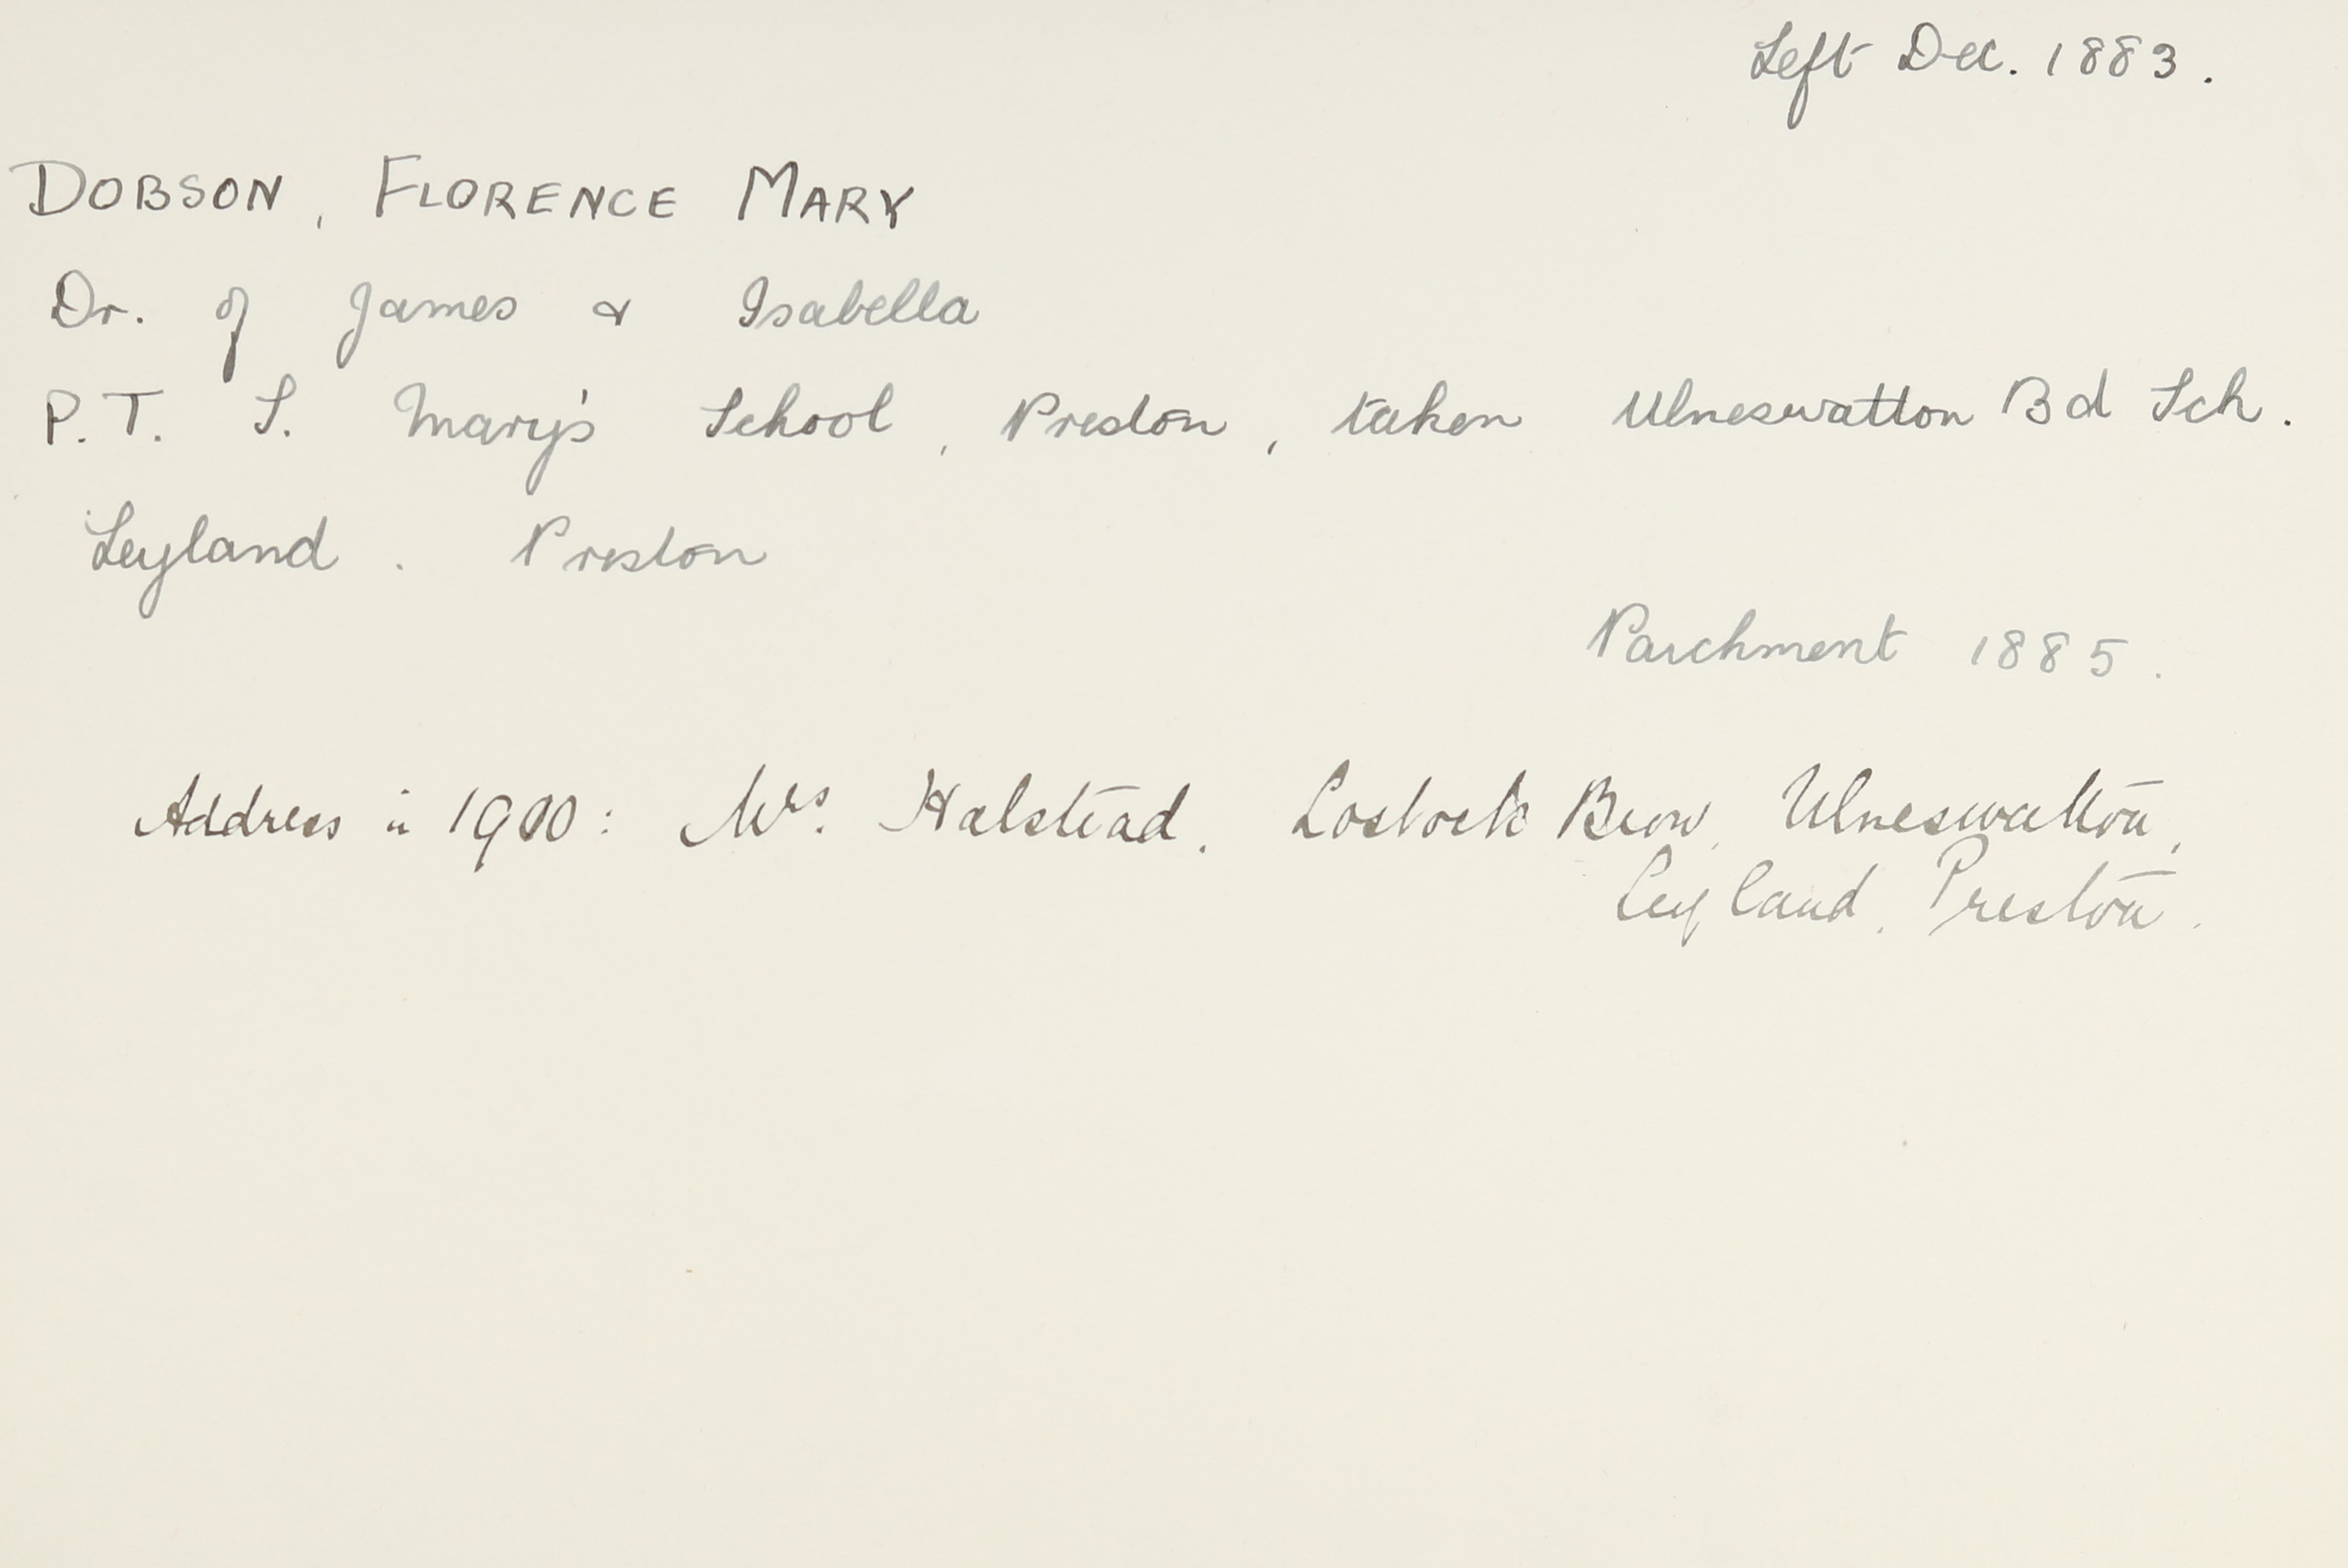 Left Dec. 1883.
DOBSON, FLORENCE MARY
Dr. of James & Isabella
P.T. S. Mary's School, Preston, taken Ulneswatton Bd Sch.
Leyland. Preston
Parchment 1885.
Address in 1900: Mrs. Halstead. Lostock Brow, Ulneswalton,
Leyland. Preston.